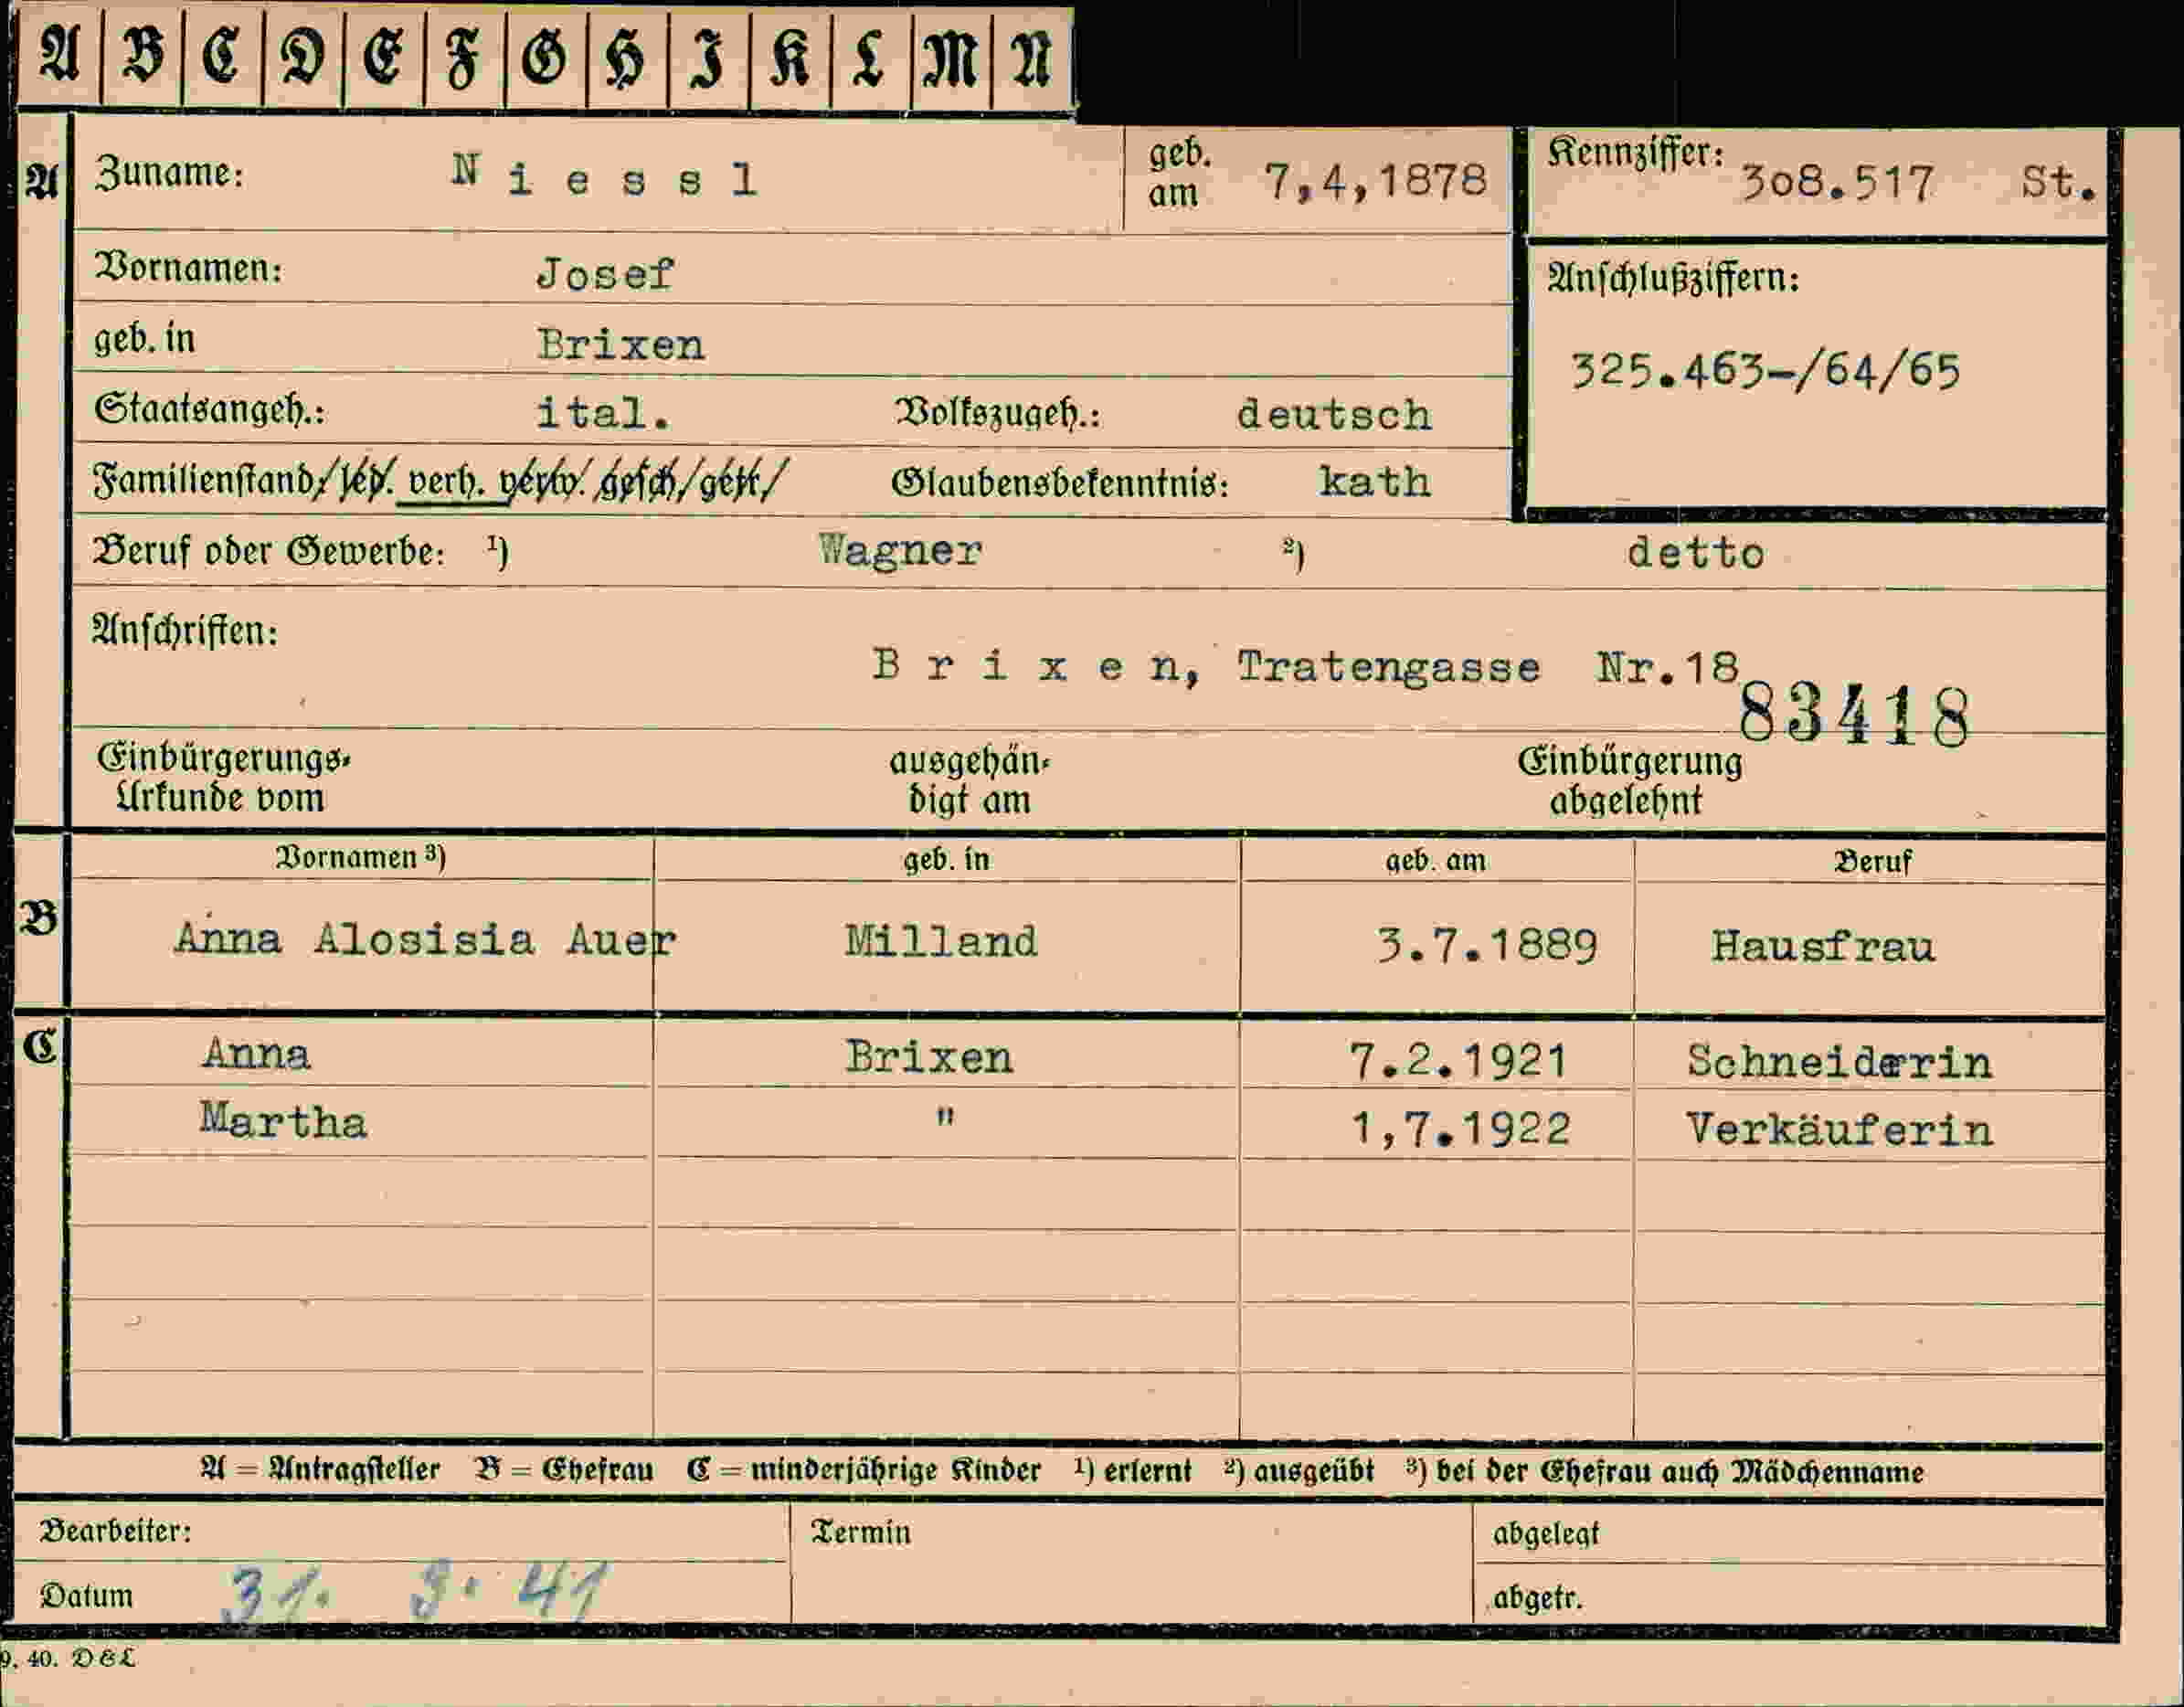 A B C D E F G H I K L M N
A Zuname: N i e s s l geb. am 7,4,1878 Kennziffer: 3o8.517 St.
Vornamen: Josef
Anschlußziffern:
geb. in Brixen
325.463-/64/65
Staatsangeh.: ital. Volkszugeh.: deutsch
Familienstand/led. verh. verw. gesch/getr/ Glaubensbekenntnis: kath
Beruf oder Gewerbe: ¹) Wagner ²) detto
Anschriften:
B r i x e n, Tratengasse Nr.18
83418
Einbürgerungs- ausgehän- Einbürgerung
Urkunde vom digt am abgelehnt
Vornamen ³) geb. in geb. am Beruf
B Anna Alosisia Auer Milland 3.7.1889 Hausfrau
C Anna Brixen 7.2.1921 Schneiderin
Martha " 1,7.1922 Verkäuferin
A = Antragsteller B = Ehefrau C = minderjährige Kinder ¹) erlernt ²) ausgeübt ³) bei der Ehefrau auch Mädchenname
Bearbeiter: Termin abgelegt
Datum 31. 3. 41 abgetr.
9. 40. D&L